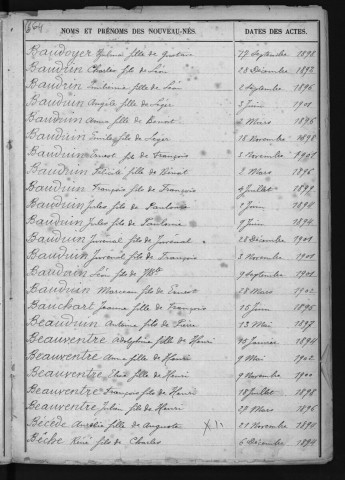 864
NOMS ET PRÉNOMS DES NOUVEAU-NÉS. DATES DES ACTES.
Baudoyer fille de Gustave 17 Septembre 1898
Baudrin Charles fils de Léon 28 Décembre 1892
Baudrin Emilienne fille de Léon 2 Septembre 1896
Baudrin Angèle fille de Léger 3 Juin 1901
Baudrin Anna fille de Benoit 2 Mars 1896
Baudrin Emile fils de Léger 15 Novembre 1898
Bauduin Ernest fils de François 3 Novembre 1901
Bauduin Félicité fille de Benoit 2 Mars 1896
Bauduin François fils de François 9 Juillet 1899
Bauduin Jules fils de 1 Juin 1894
Bauduin Jules fils de 9 Juin 1894
Bauduin Juvénal fils de Juvénal 28 Décembre 1901
Bauduin Juvénal fils de François 3 Novembre 1901
Bauduin Léon fils de Jbte 9 Septembre 1901
Bauduin Marceau fils de Ernest 28 Mars 1902
Bauchart Jeanne fille de François 15 Juin 1895
Beauduin Antoine fils de Pierre 13 Mai 1897
Beauventre Adolphine fille de Henri 25 Janvier 1894
Beauventre Anna fille de Henri 9 Mai 1902
Beauventre fille de Henri 9 Novembre 1900
Beauventre François fils de Henri 18 Juillet 1898
Beauventre Julien fils de Henri 27 Mars 1896
Bécède Aurélie fille de Auguste 21 Novembre
Bêche René fils de Charles 6 Décembre 1894